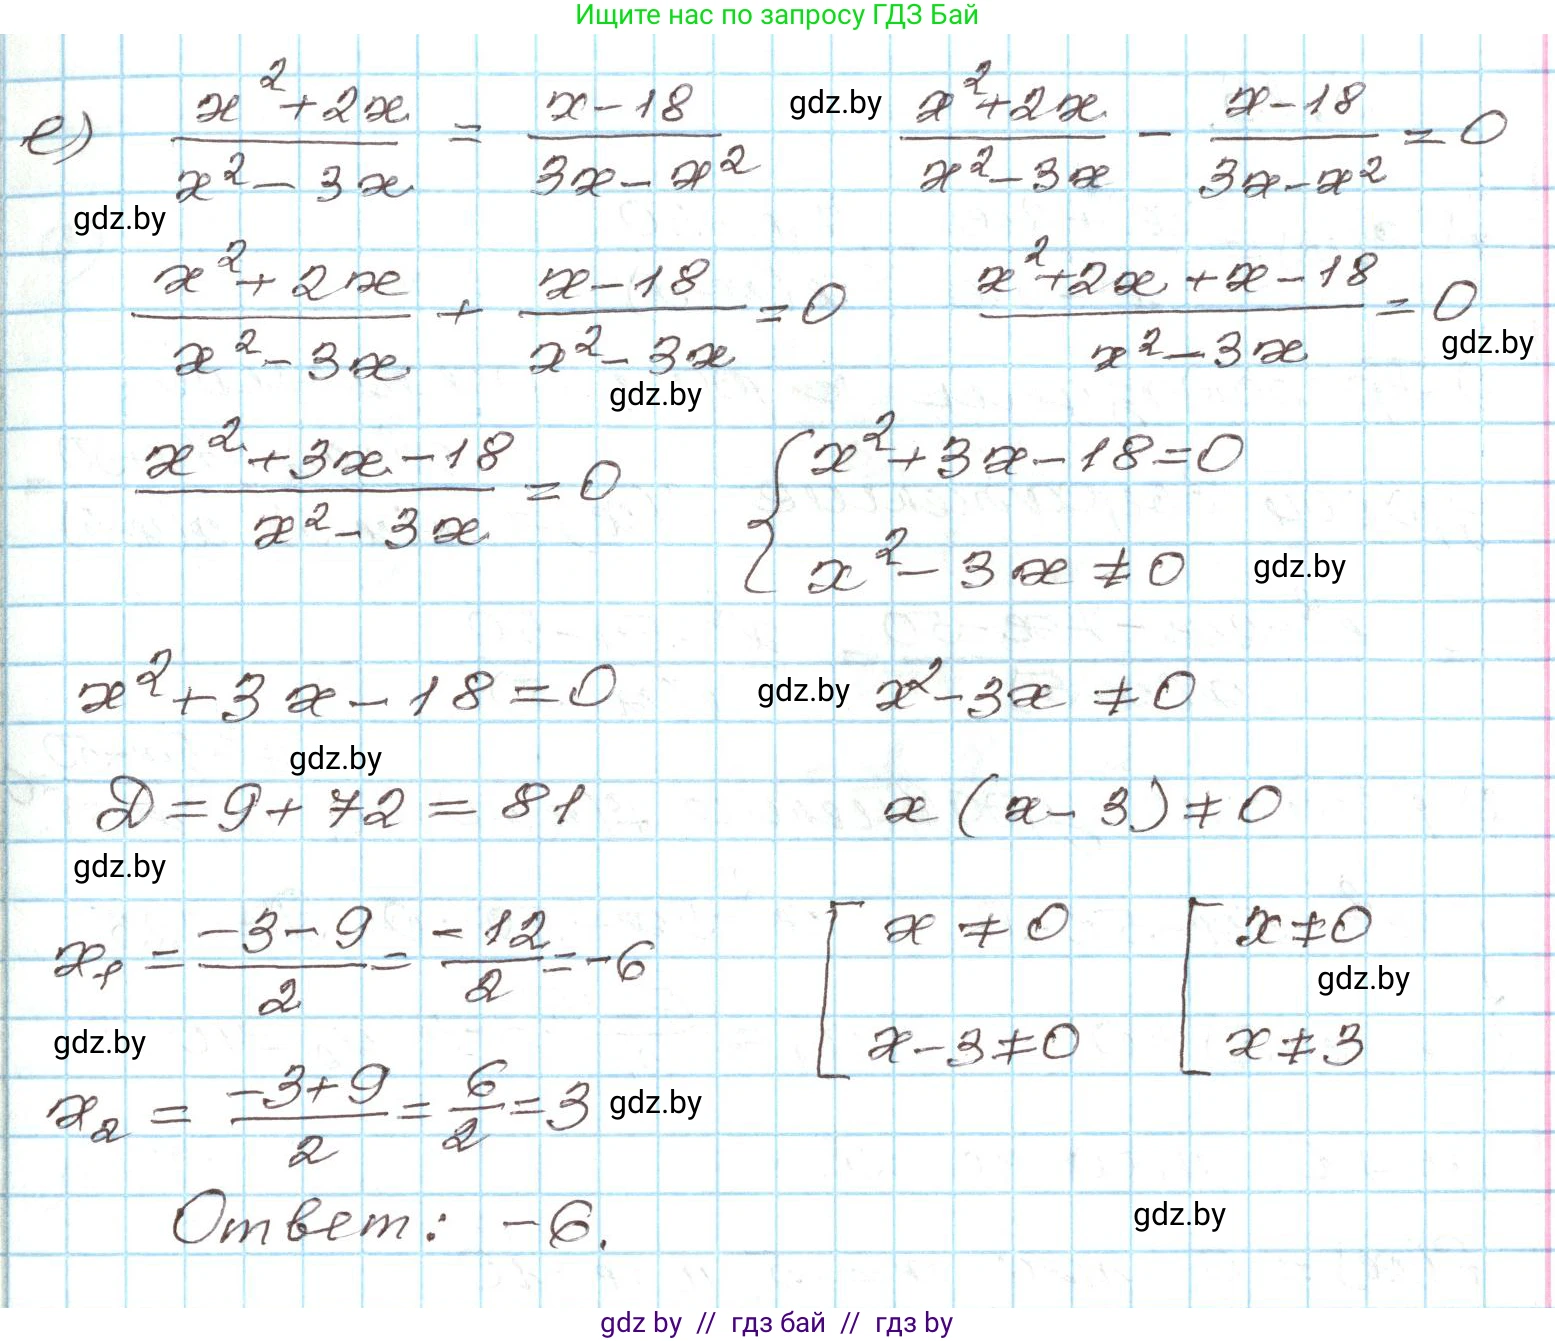 Ищите нас по запросу ГДЗ Бай
е) (x²+2x)/(x²-3x) = (x-18)/(3x-x²) gdz.by (x²+2x)/(x²-3x) - (x-18)/(3x-x²) = 0
gdz.by
(x²+2x)/(x²-3x) + (x-18)/(x²-3x) = 0 (x²+2x+x-18)/(x²-3x) = 0
gdz.by
gdz.by
(x²+3x-18)/(x²-3x) = 0 { x²+3x-18=0
x²-3x≠0 gdz.by
x²+3x-18=0 gdz.by x²-3x≠0
gdz.by
Д=9+72=81 x(x-3)≠0
gdz.by
x₁ = (-3-9)/2 = -12/2 = -6 [ x≠0 [ x≠0
gdz.by
gdz.by x-3≠0 x≠3
x₂ = (-3+9)/2 = 6/2 = 3 gdz.by
Ответ: -6. gdz.by
gdz by // гдз бай // гдз by